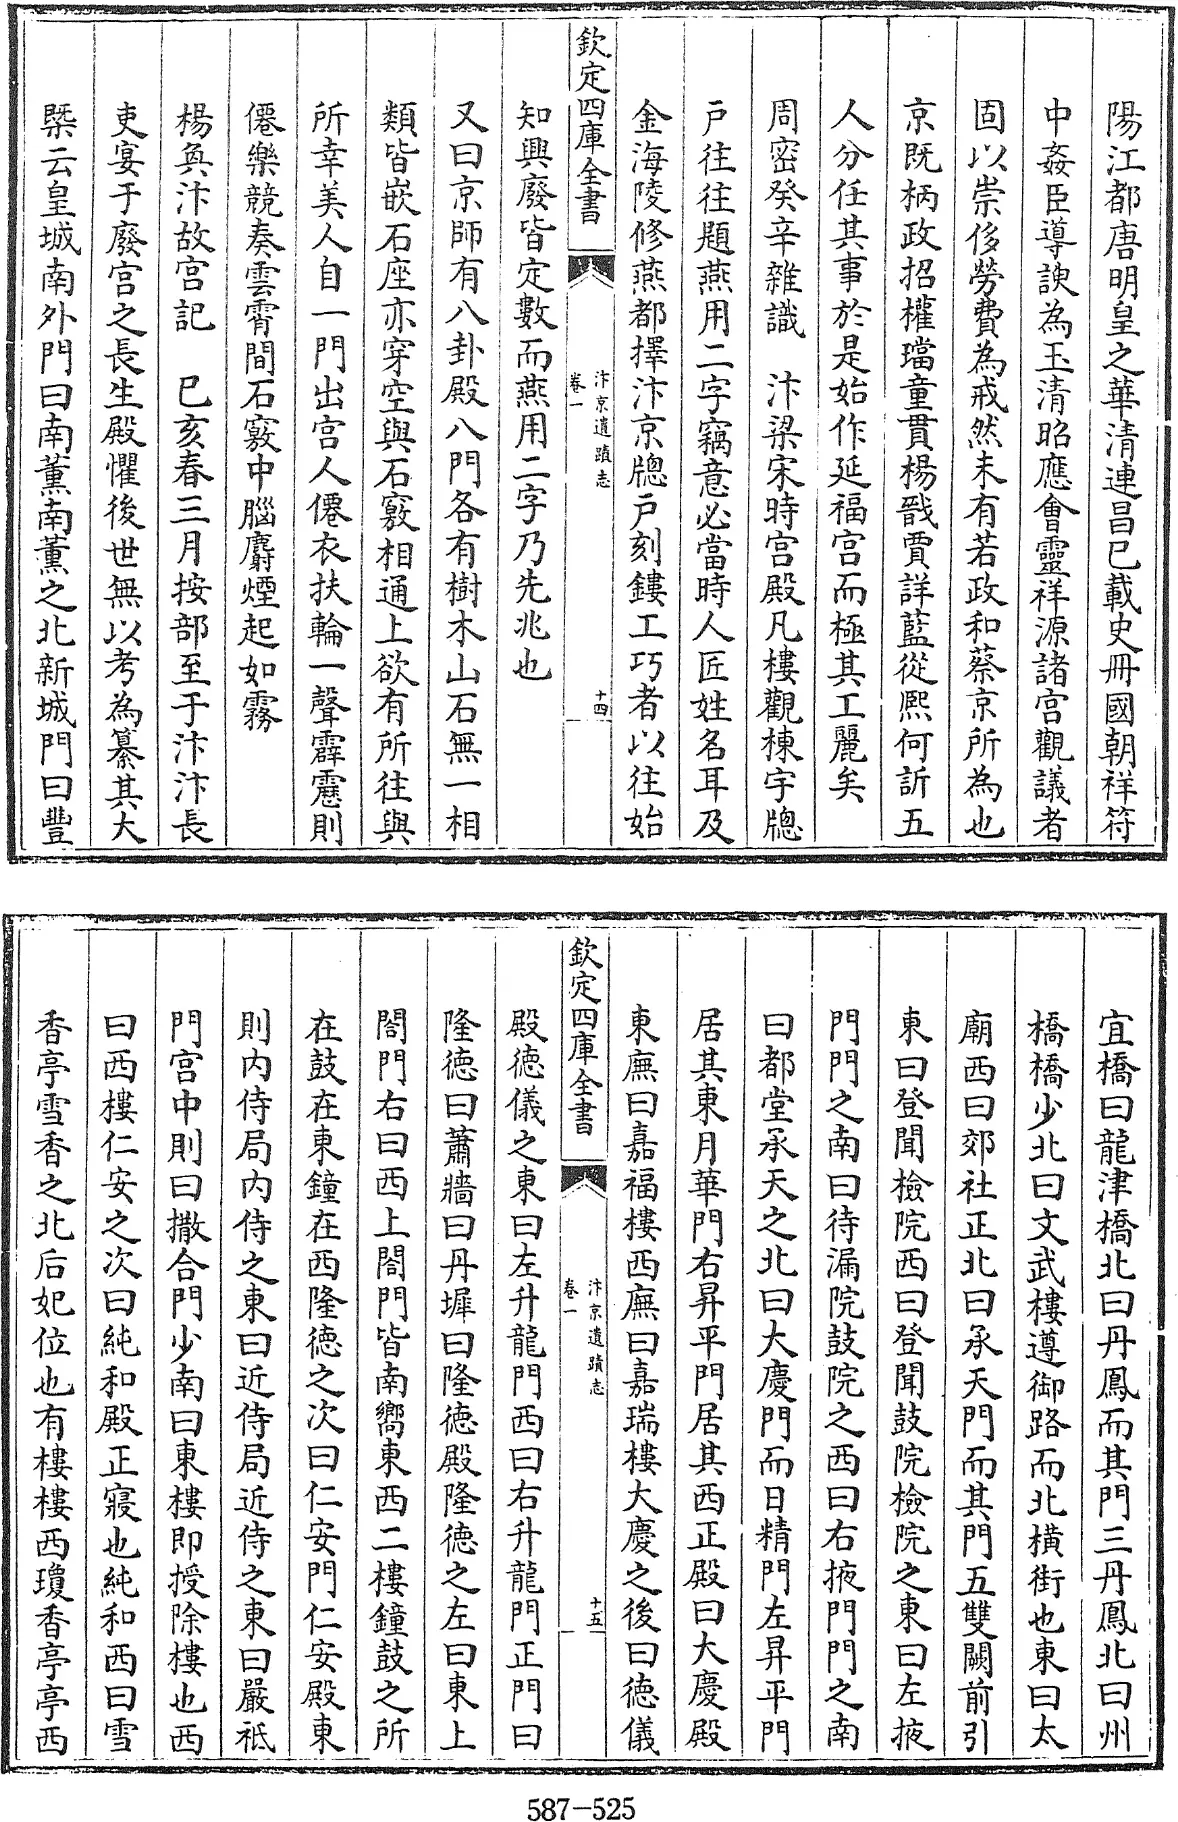 陽江都唐明皇之華清連昌已載史冊國朝祥符
中姦臣導諛為玉清昭應會靈祥源諸宮觀議者
固以崇侈勞費為戒然未有若政和蔡京所為也
京既柄政招權璫童貫楊戩賈詳藍從熙何訢五
人分任其事於是始作延福宮而極其工麗矣
周密癸辛雜識　汴梁宋時宮殿凡樓觀棟宇牕
戶往往題燕用二字竊意必當時人匠姓名耳及
金海陵修燕都擇汴京牕戶刻鏤工巧者以往始
欽定四庫全書
汴京遺蹟志
卷一
十四
知興廢皆定數而燕用二字乃先兆也
又曰京師有八卦殿八門各有樹木山石無一相
類皆嵌石座亦穿空與石竅相通上欲有所往與
所幸美人自一門出宮人僊衣扶輪一聲霹靂則
僊樂競奏雲霄間石竅中腦麝煙起如霧
楊奐汴故宮記　已亥春三月按部至于汴汴長
吏宴于廢宮之長生殿懼後世無以考為纂其大
槩云皇城南外門曰南薰南薰之北新城門曰豐
宜橋曰龍津橋北曰丹鳳而其門三丹鳳北曰州
橋橋少北曰文武樓遵御路而北橫街也東曰太
廟西曰郊社正北曰承天門而其門五雙闕前引
東曰登聞檢院西曰登聞鼓院檢院之東曰左掖
門門之南曰待漏院鼓院之西曰右掖門門之南
曰都堂承天之北曰大慶門而日精門左昇平門
居其東月華門右昇平門居其西正殿曰大慶殿
東廡曰嘉福樓西廡曰嘉瑞樓大慶之後曰德儀
欽定四庫全書
汴京遺蹟志
卷一
十五
殿德儀之東曰左升龍門西曰右升龍門正門曰
隆德曰蕭牆曰丹墀曰隆德殿隆德之左曰東上
閤門右曰西上閤門皆南嚮東西二樓鐘鼓之所
在鼓在東鐘在西隆德之次曰仁安門仁安殿東
則內侍局內侍之東曰近侍局近侍之東曰嚴祗
門宮中則曰撒合門少南曰東樓即授除樓也西
曰西樓仁安之次曰純和殿正寢也純和西曰雪
香亭雪香之北后妃位也有樓樓西瓊香亭亭西
587-525